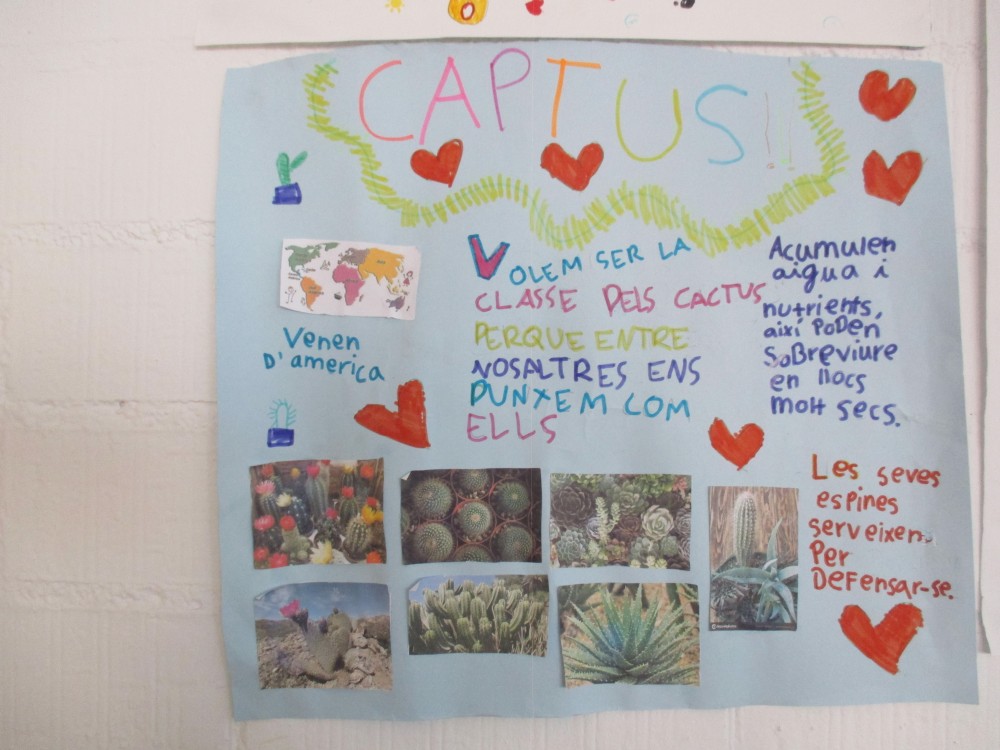 CAPTUS!!
Venen
D'america
VOLEM SER LA
CLASSE DELS CACTUS
PERQUE ENTRE
NOSALTRES ENS
PUNXEM COM
ELLS
Acumulen
aigua i
nutrients,
així PoDen
SoBreviure
en llocs
molt secs.
Les seves
espines
serveixen
Per
DeFensar-se.